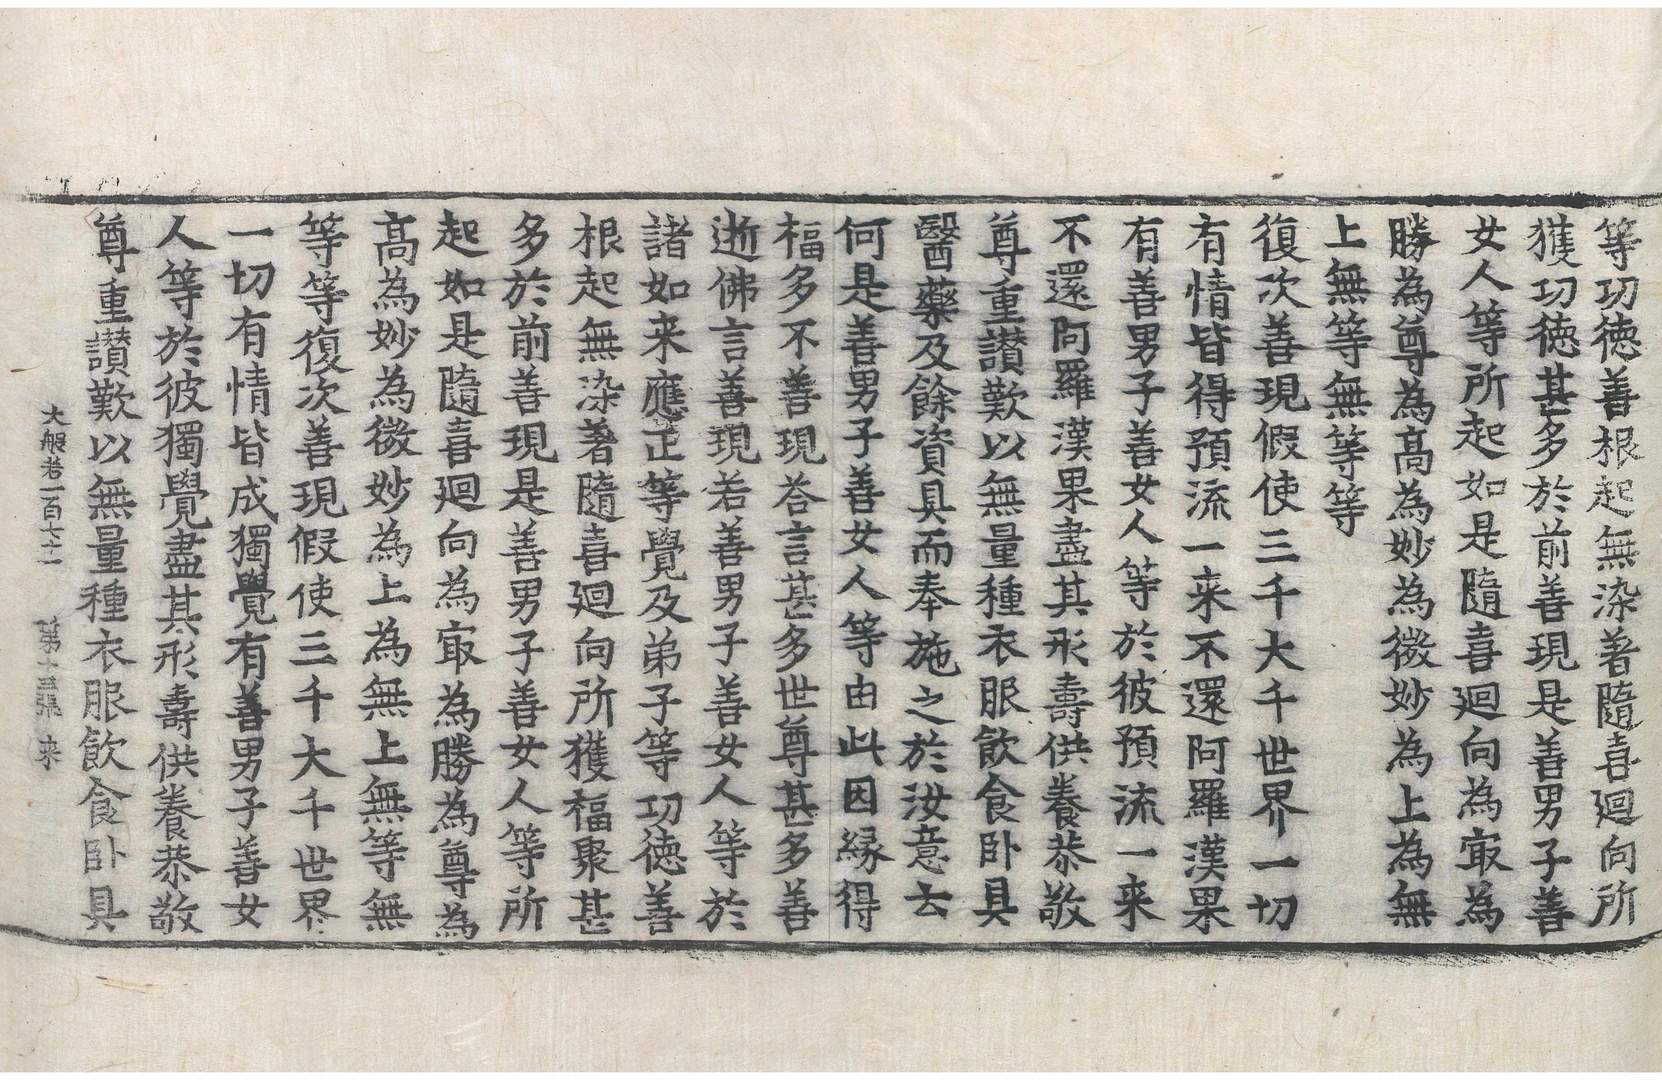 等功德善根起無染著隨喜迴向所
獲功德甚多於前善現是善男子善
女人等所起如是隨喜迴向為㝡為
勝為尊為高為妙為微妙為上為無
上無等無等等
復次善現假使三千大千世界一切
有情皆得預流一来不還阿羅漢果
有善男子善女人等於彼預流一来
不還阿羅漢果盡其形壽供養恭敬
尊重讃歎以無量種衣服飲食卧具
醫藥及餘資具而奉施之於汝意云
何是善男子善女人等由此因縁得
福多不善現荅言甚多世尊甚多善
逝佛言善現若善男子善女人等於
諸如来應正等覺及弟子等功德善
根起無染著隨喜迴向所獲福聚甚
多於前善現是善男子善女人等所
起如是隨喜迴向為㝡為勝為尊為
高為妙為微妙為上為無上無等無
等等復次善現假使三千大千世界
一切有情皆成獨覺有善男子善女
人等於彼獨覺盡其形壽供養恭敬
尊重讃歎以無量種衣服飲食卧具
大般若一百六十 第十三張 来